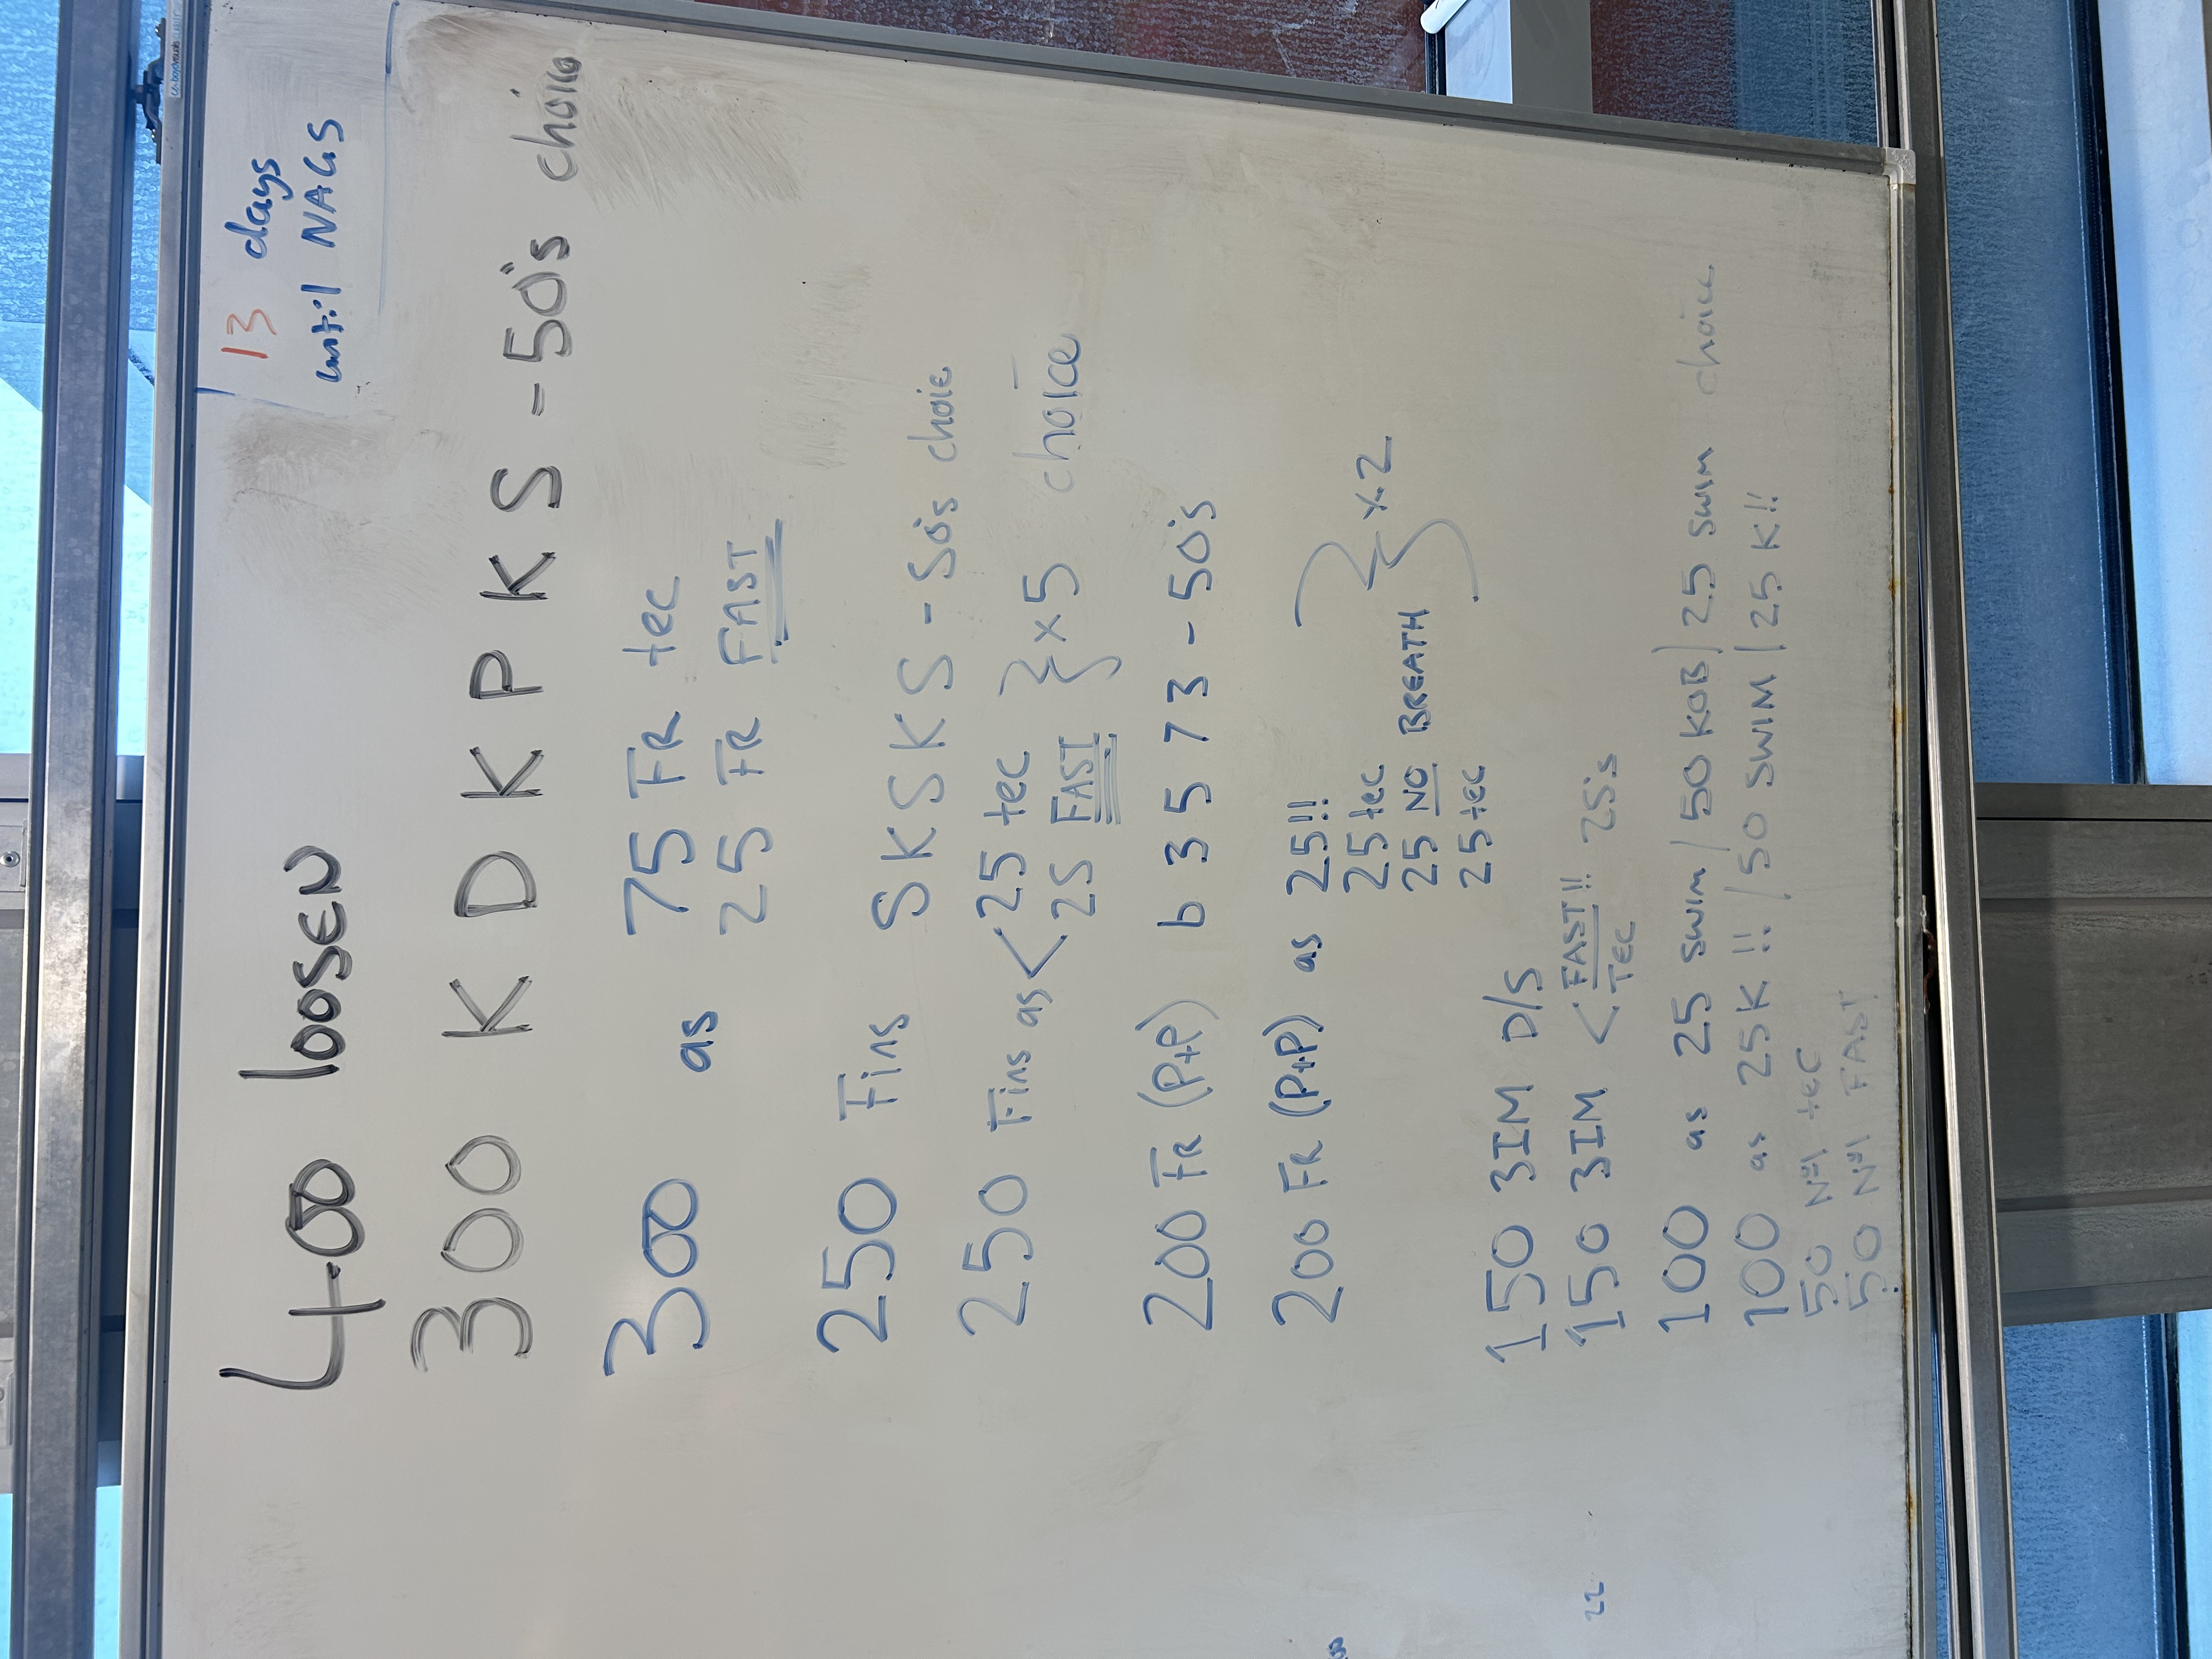 13 days
until NAGS
400 loosen
300 K D K P K S - 50's choice
300 as 75 FR tec
25 FR FAST
250 Fins SKSKS - 50's choie
250 Fins as < 25 tec } x5 choice
25 FAST
200 FR (P+P) b 3 5 7 3 - 50's
200 FR (P+P) as 25!!
25 tec
25 NO BREATH } x2
25 tec
150 3IM D/S
150 3IM < FAST!! 25's
TEC
100 as 25 swim / 50 KOB / 25 swim choice
100 as 25K !! / 50 SWIM / 25 K!!
50 Nº1 tec
50 Nº1 FAST
22